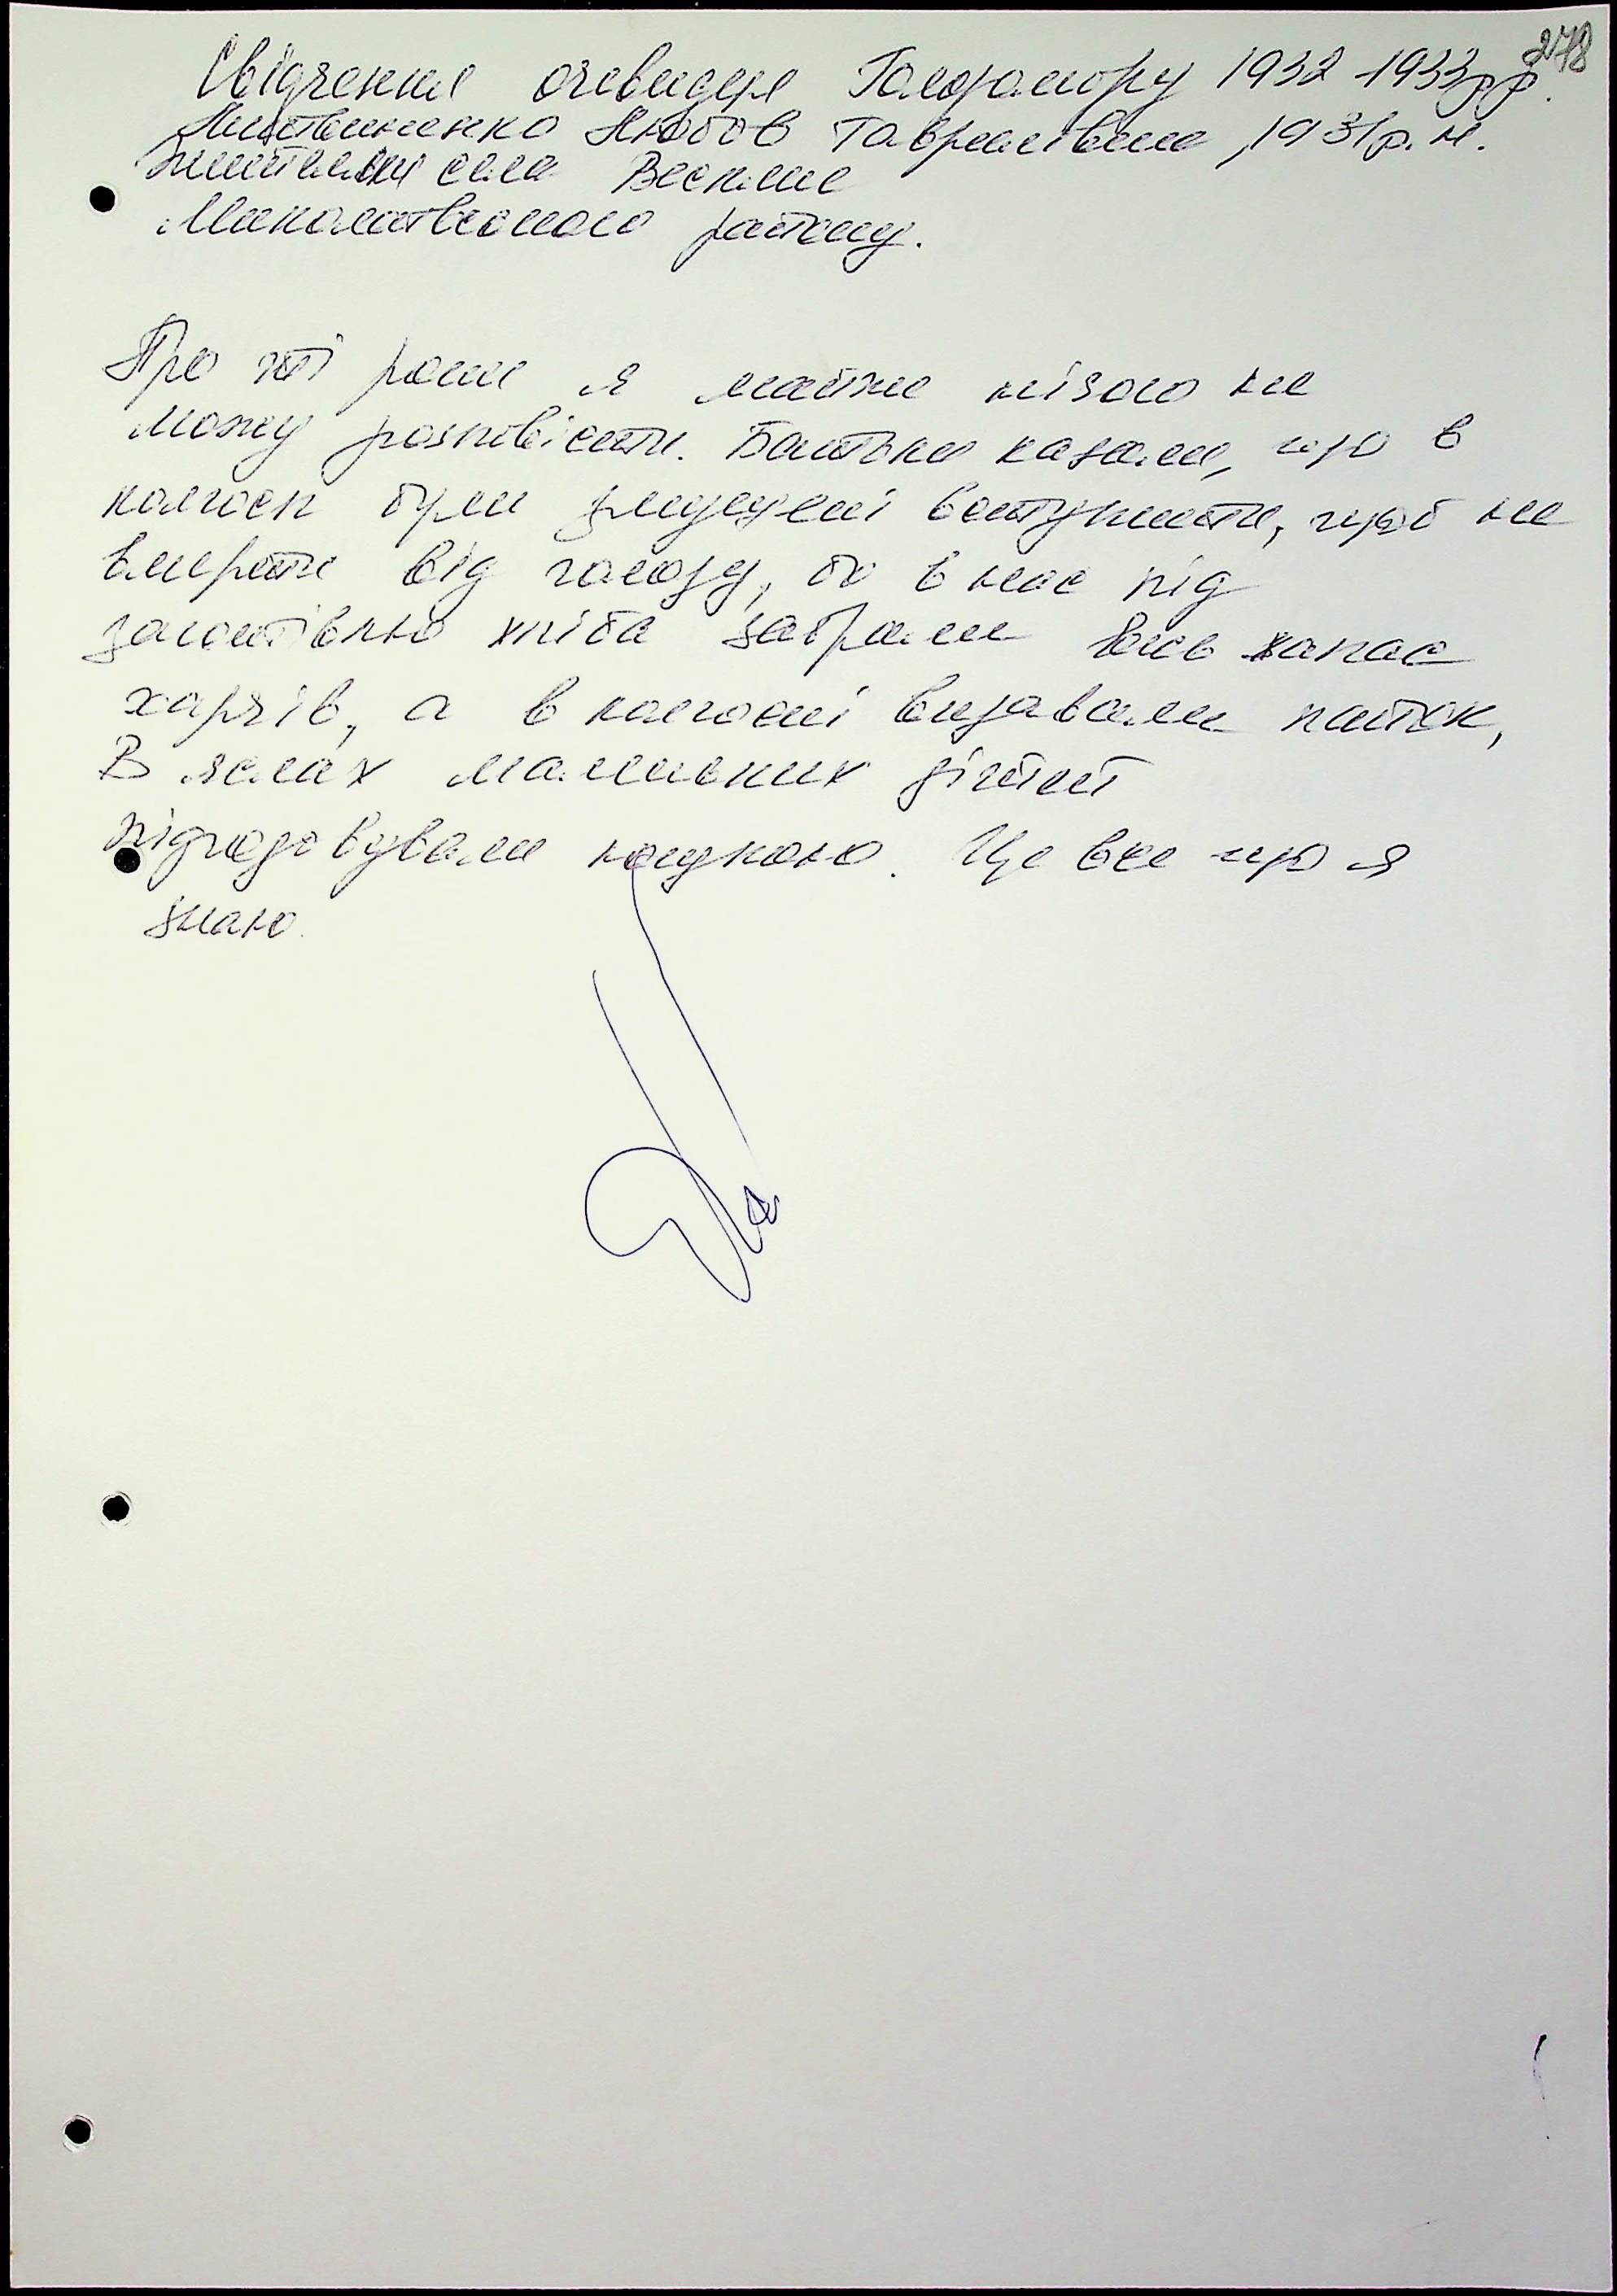 278
Свідчення очевидця Голодомору 1932-1933рр.
Литвиненко Любов Гаврилівна, 1931р.н.
жителька села Весняне
Миколаївського району.
Про ті роки я майже нічого не
можу розповісти. Батьки казали, що в
колгосп були змушені вступити, щоб не
вмерти від голоду, бо в нас під
заготівлю хліба забрали весь запас
харчів, а в колгоспі видавали пайок,
В яслах маленьких дітей
підгодовували кашкою. Це все що я
знаю.